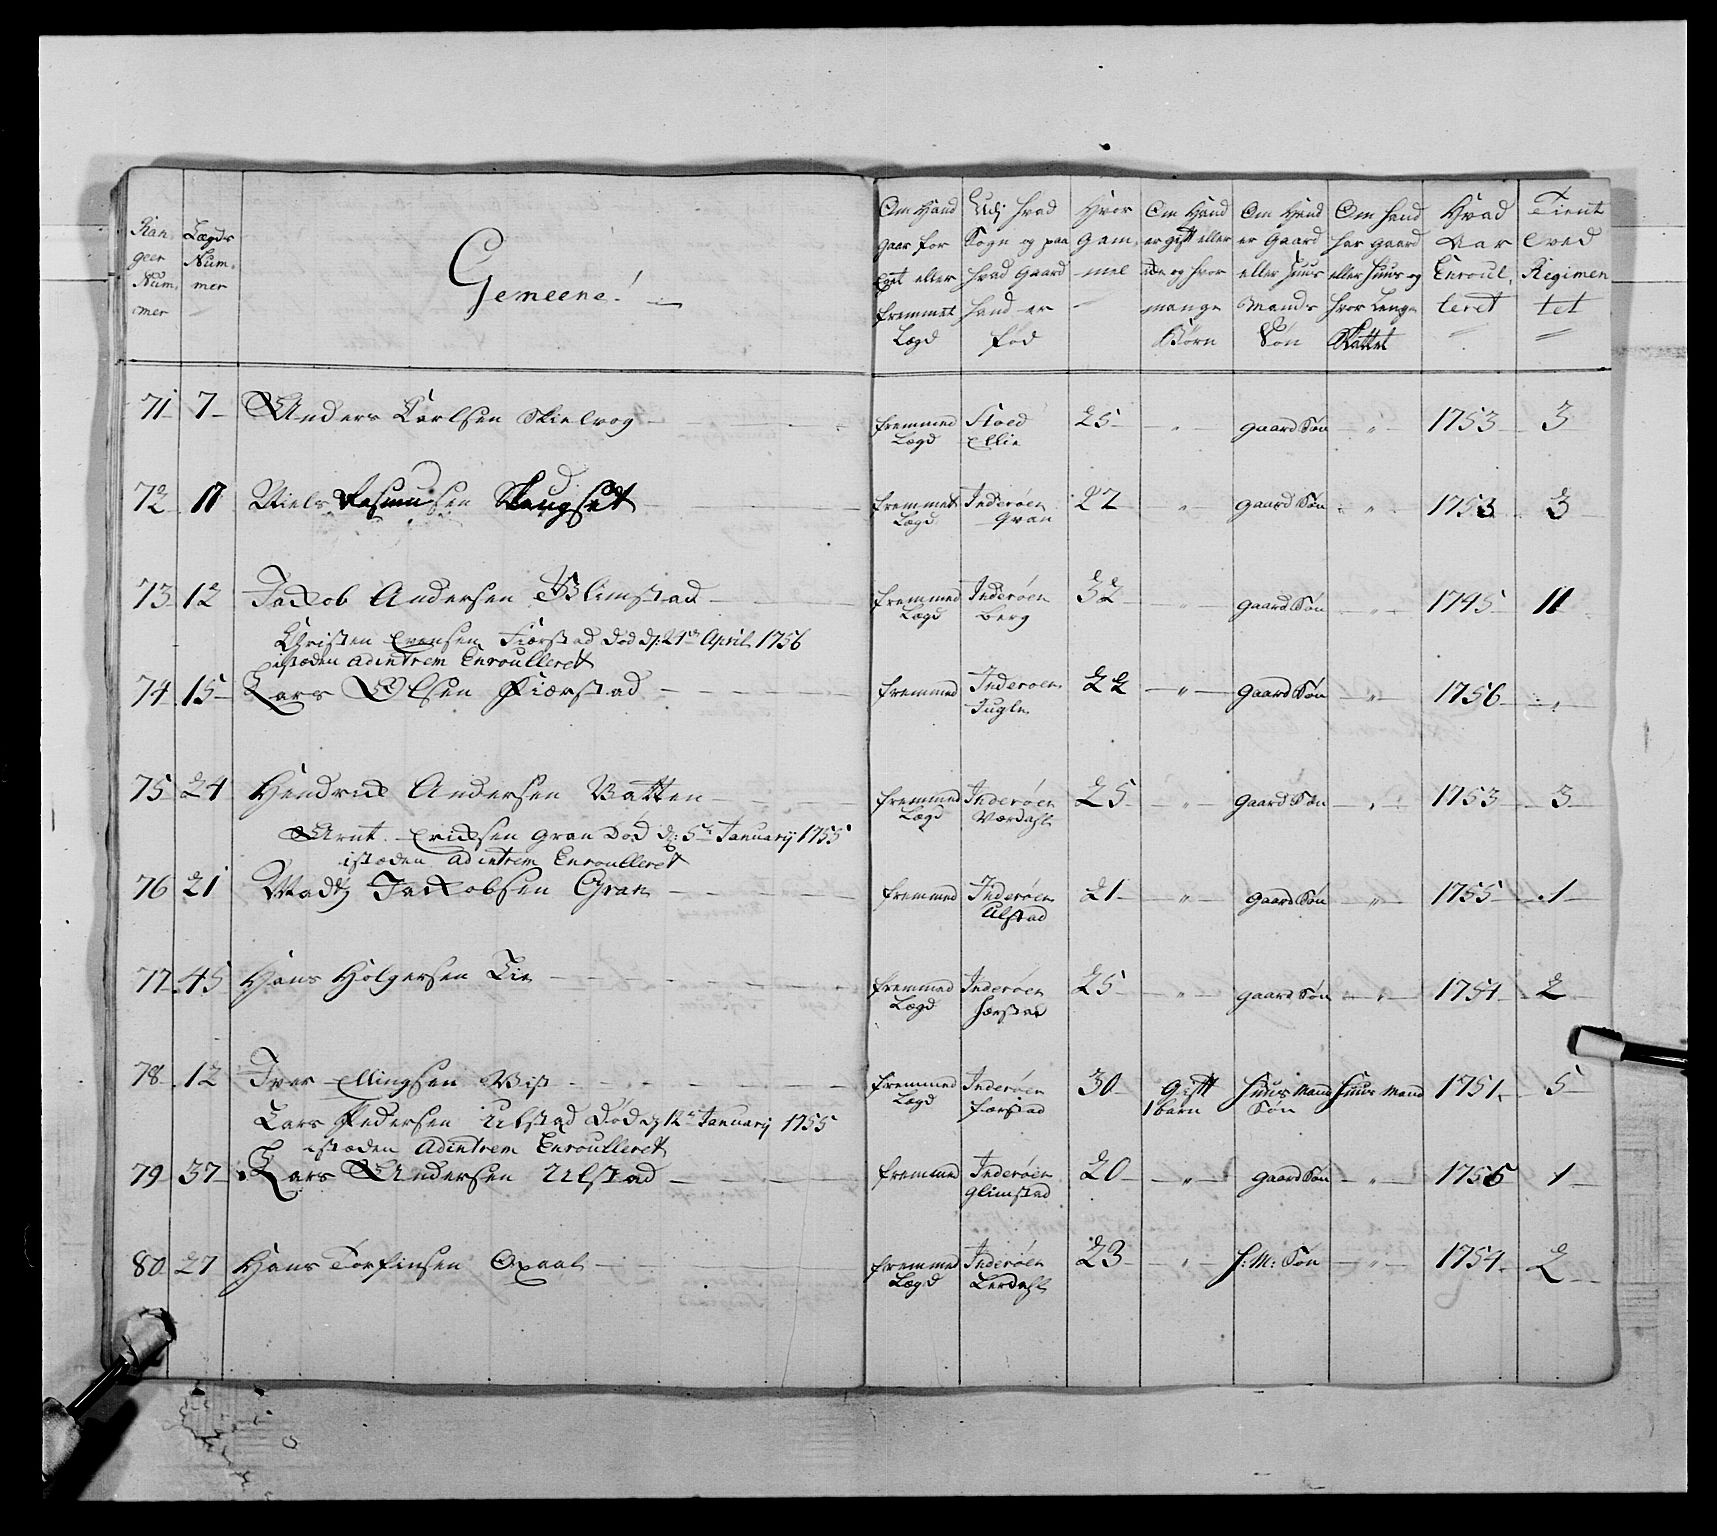 Ran- Lægds
geer Num-
Num- mer
mer
Gemeene!
Om Hand gaar for Eget eller fremmet Lægd
Udj hvad Sogn og paa hvad Gaard hand er fød
Hvor Gam- mel
Om Hand er gift eller og hvor mange Børn
Om Hand er Gaard eller Huus Mands Søn
Om hand har gaard eller Huus og hvor Længe Skattet
Hvad Aar Enroul- leret
Tient ved Regimen tet
71 7 Anders Carlsen Skielvog fremmed Lægd Stoed Ellie 25 " gaard Søn " 1753 3
72 11 Niels Rasmusen Skeugset fremmet Lægd Inderøen Gran 27 " gaard Søn " 1753 3
73 12 Jacob Andersen Glimstad fremmed Lægd Inderøen berg 32 " gaard Søn " 1745 11
Christen Evensen Fiørstad død d: 21de April 1756
istæden adintrem Enroulleret
74 15 Lars Olsen Fiørstad fremmed Inderøen Fugle 22 " gaard Søn " 1756 "
75 24 Hendrick Andersen Vatten fremmed Lægd Inderøen Værdahl 25 " gaard Søn " 1753 3
Arnt Ericksen Gran død d: 5te January 1755
istæden adintrem Enroulleret
76 21 Madtz Jacobsen Gran fremmed Inderøen Ulstad 21 " gaard Søn " 1755 1
77 45 Hans Holgersen Lie fremmed Lægd Inderøen 25 " gaard Søn " 1754 2
78 12 Iver Ellingsen Vist fremmed Lægd Inderøen 30 Gift 1 barn Huus Mand Søn Huus Mand 1751 5
Lars Pedersen Ulstad død d: 12te January 1755
istæden adintrem Enroulleret
79 37 Lars Andersen Ulstad fremmed Inderøen Glimstad 20 " gaard Søn " 1755 1
80 27 Hans Torfinsen Oxaal fremmed Lægd Inderøen Lerdahl 23 " H: M: Søn " 1754 2